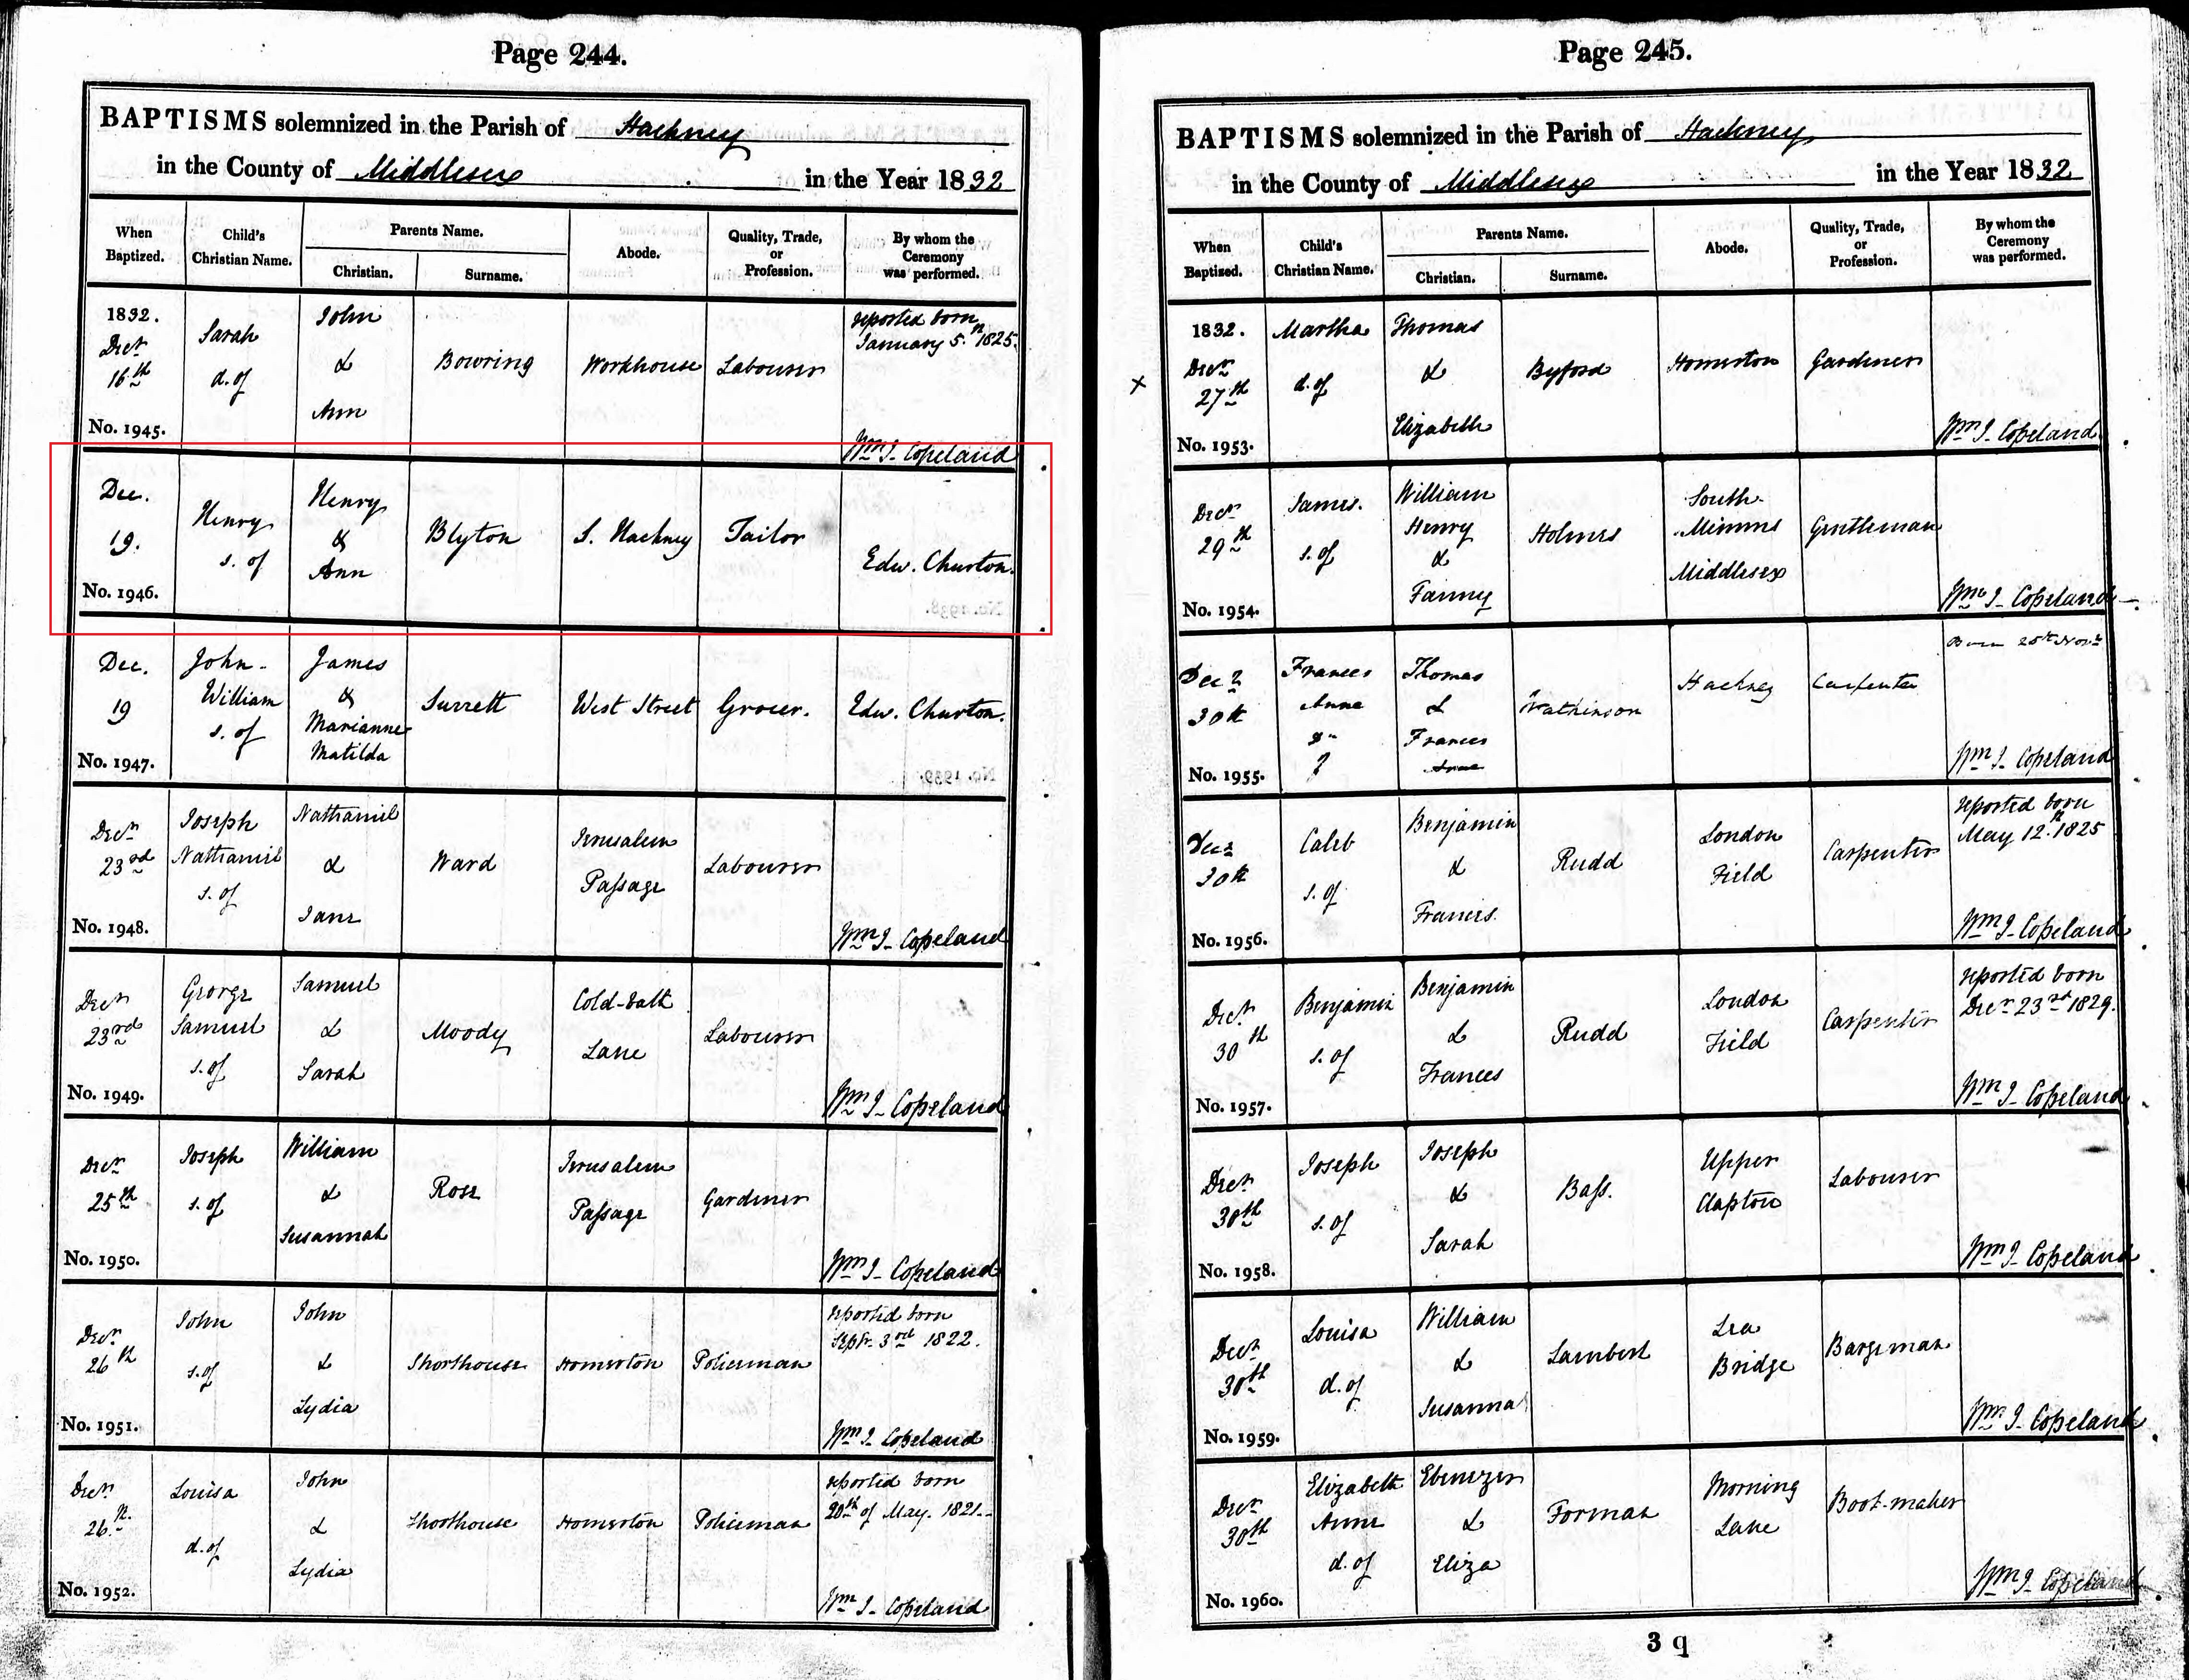 Page 244.
BAPTISMS solemnized in the Parish of Hackney
in the County of Middlesex in the Year 1832
When Baptized.
Child's Christian Name.
Parents Name.
Christian.
Surname.
Abode.
Quality, Trade, or Profession.
By whom the Ceremony was performed.
1832.
Decr
16th
No. 1945.
Sarah
d. of
John
&
Ann
Bowring
Workhouse
Labourer
reported born
January 5.th 1825.
Wm J. Copeland
Dec.
19.
No. 1946.
Henry
s. of
Henry
&
Ann
Blyton
S. Hackney
Tailor
Edw. Churton.
Dec.
19
No. 1947.
John
William
s. of
James
&
Marianne
Matilda
Surrett
West Street
Grocer.
Edw. Churton.
Decr
23rd
No. 1948.
Joseph
Nathaniel
s. of
Nathaniel
&
Jane
Ward
Jerusalem
Passage
Labourer
Wm J. Copeland
Decr
23rd
No. 1949.
George
Samuel
s. of
Samuel
&
Sarah
Moody
Cold-bath
Lane
Labourer
Wm J. Copeland
Decr
25th
No. 1950.
Joseph
s. of
William
&
Susannah
Rose
Jerusalem
Passage
Gardener
Wm J. Copeland
Decr
26th
No. 1951.
John
s. of
John
&
Lydia
Shorthouse
Homerton
Policeman
reported born
Septr 3rd 1822.
Wm J. Copeland
Decr
26th
No. 1952.
Louisa
d. of
John
&
Lydia
Shorthouse
Homerton
Policeman
reported born
20th of May. 1821.
Wm J. Copeland
Page 245.
BAPTISMS solemnized in the Parish of Hackney
in the County of Middlesex in the Year 1832
When Baptized.
Child's Christian Name.
Parents Name.
Christian.
Surname.
Abode.
Quality, Trade, or Profession.
By whom the Ceremony was performed.
x
1832.
Decr
27th
No. 1953.
Martha
d. of
Thomas
&
Elizabeth
Byford
Homerton
Gardener
Wm J. Copeland
Decr
29th
No. 1954.
James.
s. of
William
Henry
&
Fanny
Holmes
South
Mimms
Middlesex
Gentleman
Wm J. Copeland
Decr
30th
No. 1955.
Frances
Anne
Thomas
&
Frances
Anne
Watkinson
Hackney
Carpenter
Born 28th Novr
Wm J. Copeland
Decr
30th
No. 1956.
Caleb
s. of
Benjamin
&
Frances.
Rudd
London
Field
Carpenter
reported born
May 12.th 1825
Wm J. Copeland
Decr
30th
No. 1957.
Benjamin
s. of
Benjamin
&
Frances
Rudd
London
Field
Carpenter
reported born
Decr 23rd 1829.
Wm J. Copeland
Decr
30th
No. 1958.
Joseph
s. of
Joseph
&
Sarah
Bass.
Upper
Clapton
Labourer
Wm J. Copeland
Decr
30th
No. 1959.
Louisa
d. of
William
&
Susanna
Lambert
Lea
Bridge
Bargeman
Wm J. Copeland
Decr
30th
No. 1960.
Elizabeth
Anne
d. of
Ebenezer
&
Eliza
Forman
Morning
Lane
Boot-maker
Wm J. Copeland
3 q